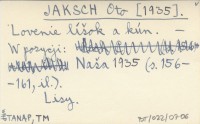 JAKSCH Oto [1935].
Lovenie líšok a kún. –
V pozícii:
Naša 1935 (s. 156–
–161, il.).
Lisy.
ŠTANAP, TM
BT/022/07-06